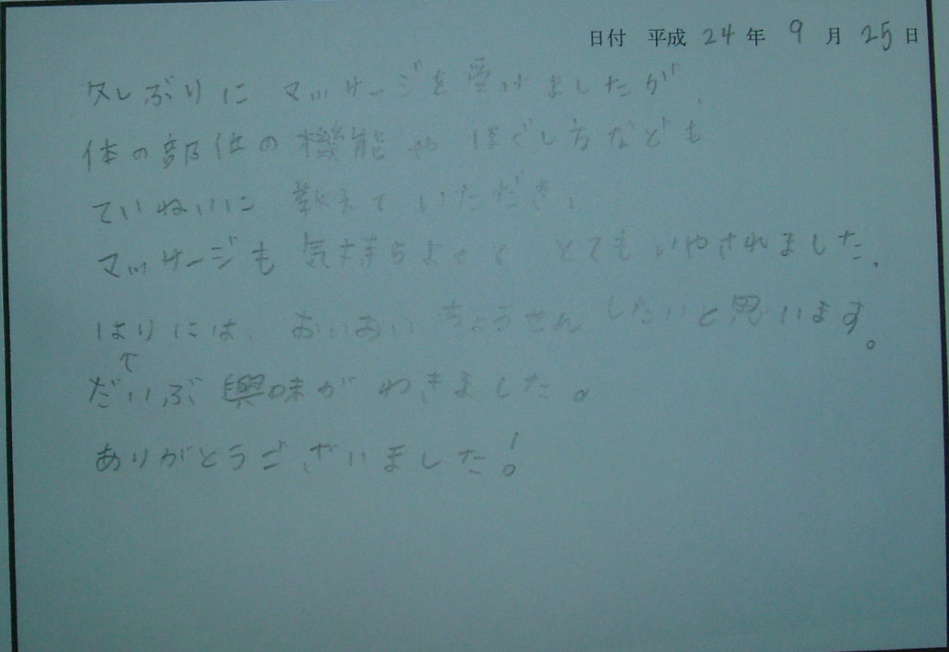 日付 平成 24 年 9 月 25 日
久しぶりに マッサージを受けましたが、
体の部位の機能や ほぐし方なども
ていねいに 教えていただき、
マッサージも 気持ちよくて とても いやされました。
はりには、おいおい ちょうせん したいと思います。
↑
だいぶ 興味が わきました。
ありがとうございました!